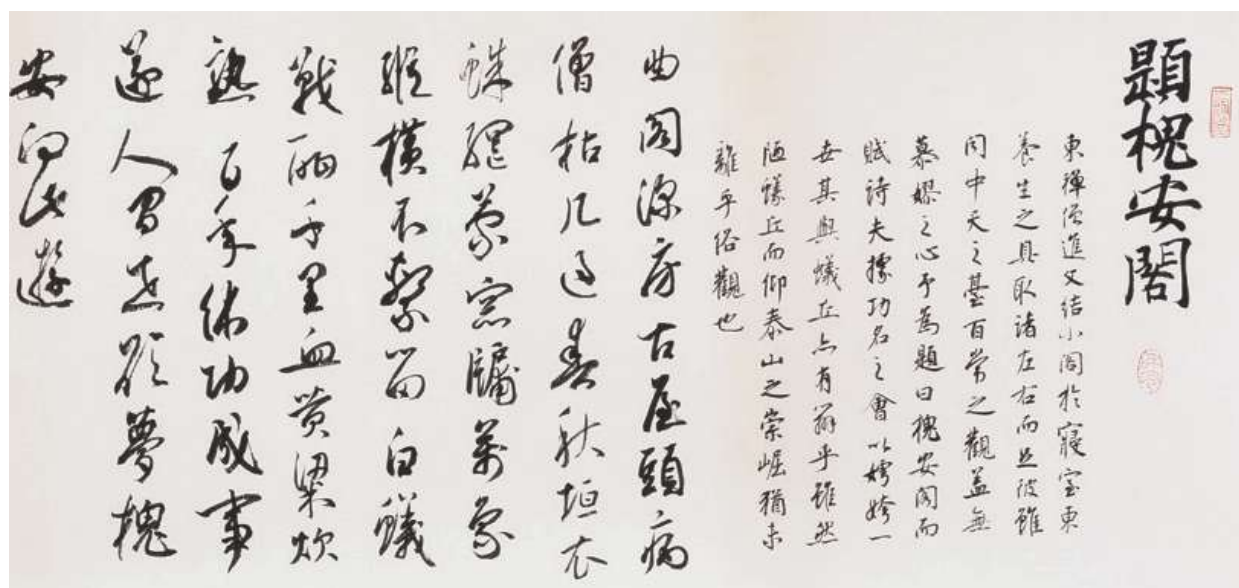 題槐安閣
東禪僧進文結小閣於寢室東
養生之具取諸左右而足彼雖
聞中天之臺百常之觀蓋無
慕嫪之心予為題曰槐安閣而
賦詩夫據功名之會以嫮姱一
世其與蟻丘亦有辨乎雖然
陋蟻丘而仰泰山之崇崛猶未
離乎俗觀也
曲閣深房古屋頭病
僧枯几過春秋垣衣
蛛網蒙窗牖萬象
縱橫不繫留白蟻
戰酣千里血黃粱炊
熟百年休功成事
遂人間世欲夢槐
安向此遊